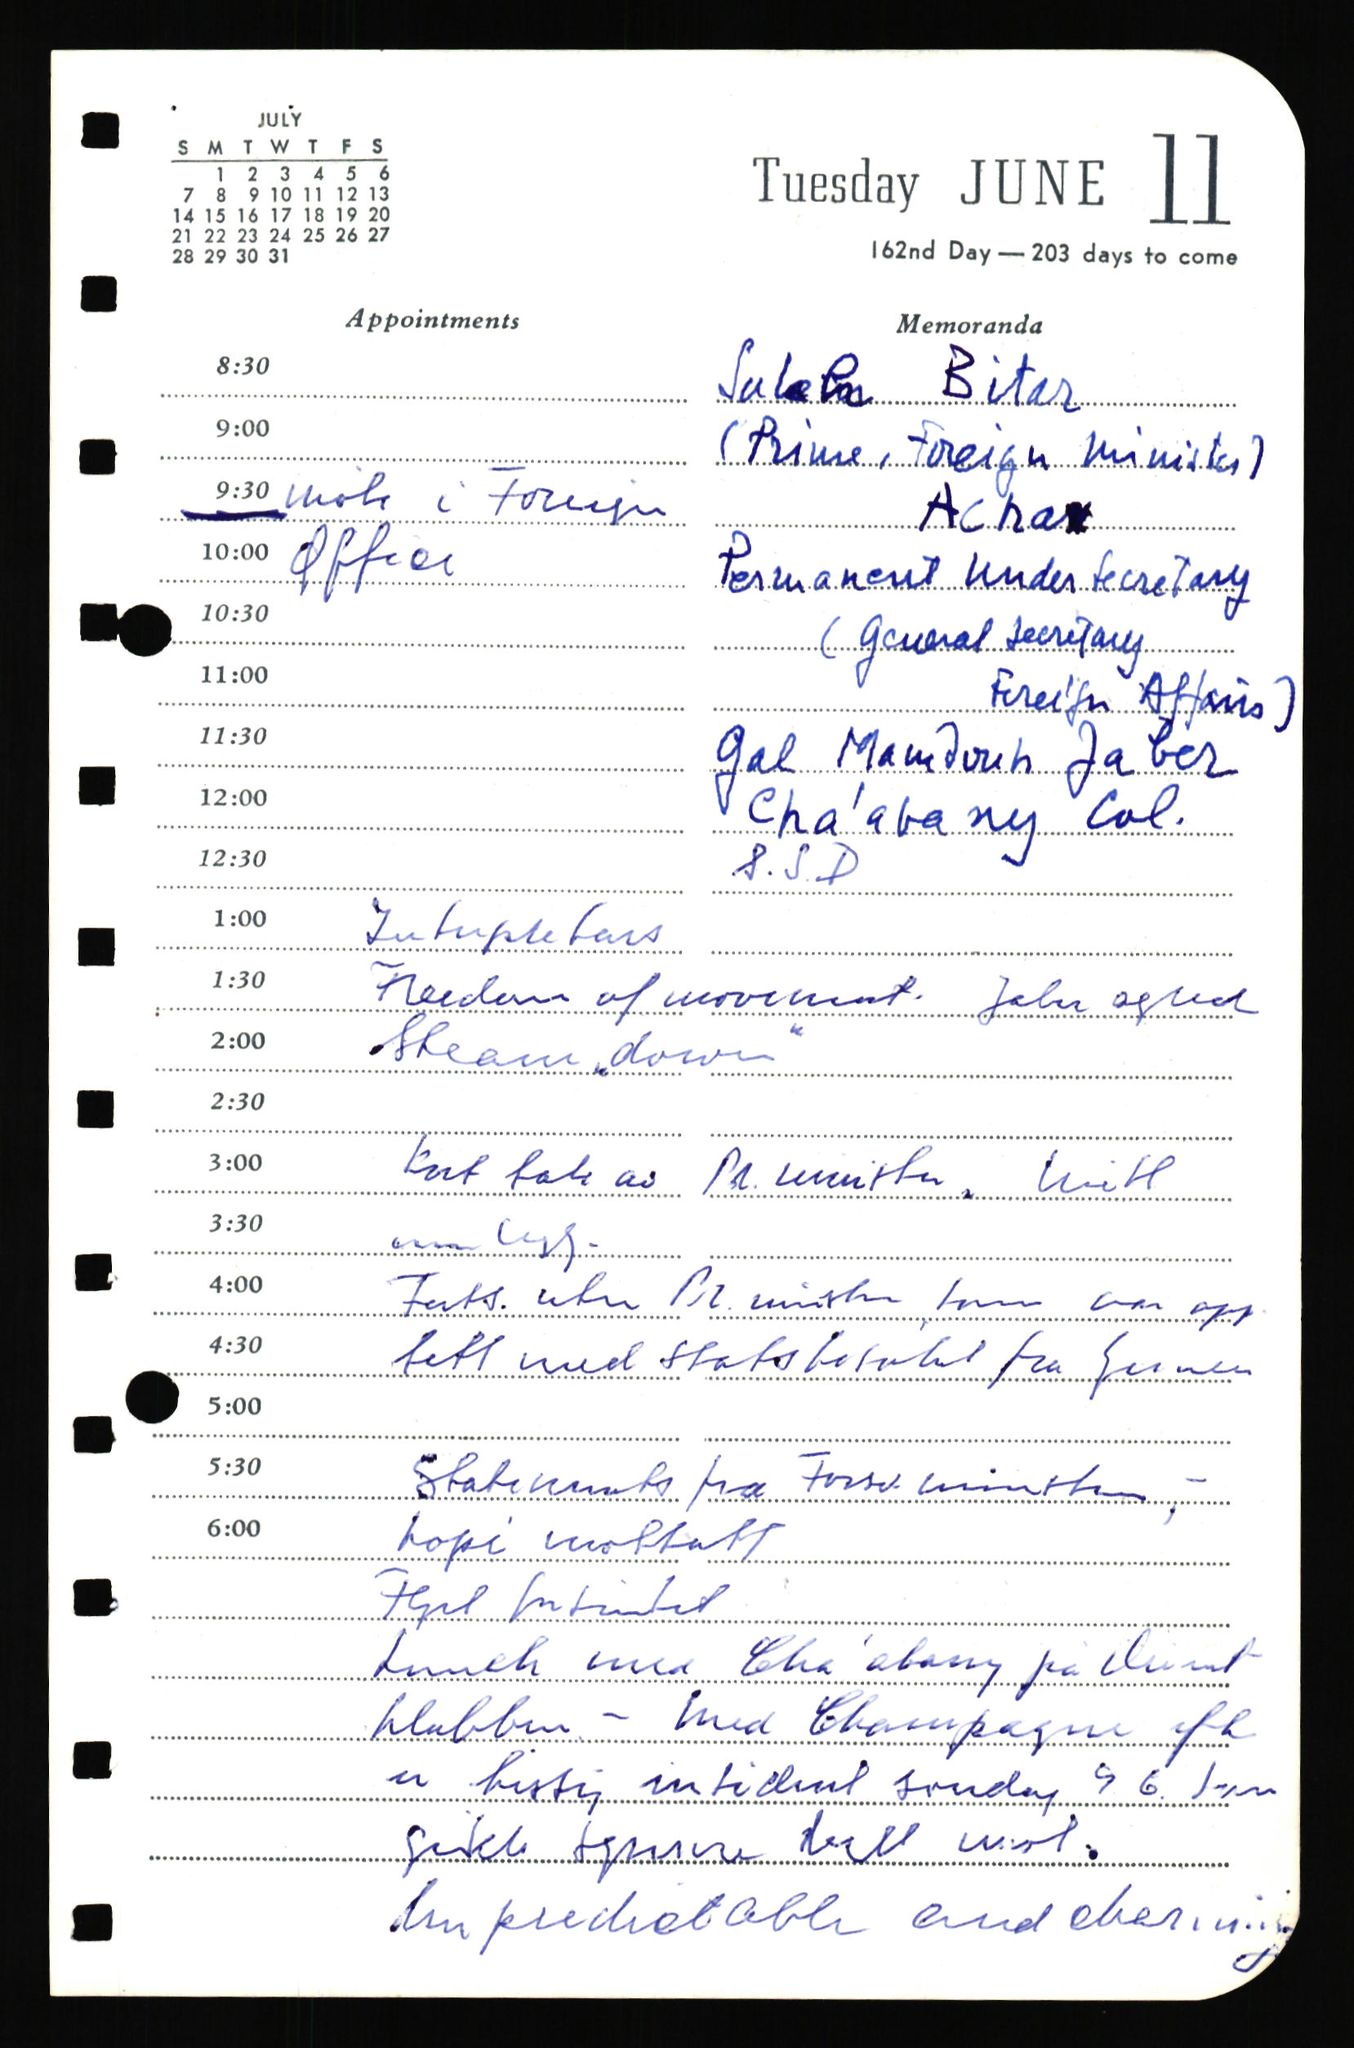 JULY
S M T W T F S
1 2 3 4 5 6
7 8 9 10 11 12 13
14 15 16 17 18 19 20
21 22 23 24 25 26 27
28 29 30 31
Tuesday JUNE 11
162nd Day — 203 days to come
Appointments
Memoranda
8:30
Bitar
9:00
(Prime, Foreign Minister)
9:30 møte i Foreign
10:00 Office
Permanent Under Secretary
10:30
(General Secretary
11:00
Foreign Affairs)
11:30
Gal Mamdouh Jaber
12:00
Cha'abany Col.
12:30
S.S.D
1:00
1:30 Freedom of movement. Jaber agreed
2:00 Steam „down"
2:30
3:00 Kort tale av Pr. minister. Mitt
3:30
4:00 Forts. uten Pr. minister, som var opp
4:30 tatt med statsbesøket fra Yemen
5:00
5:30 Statements fra Forsv. ministeren, –
6:00 kopi mottatt
Lunch med Cha'abany på
klubben – med Champagne
intident søndag 9 6.
Unpredictable and charming